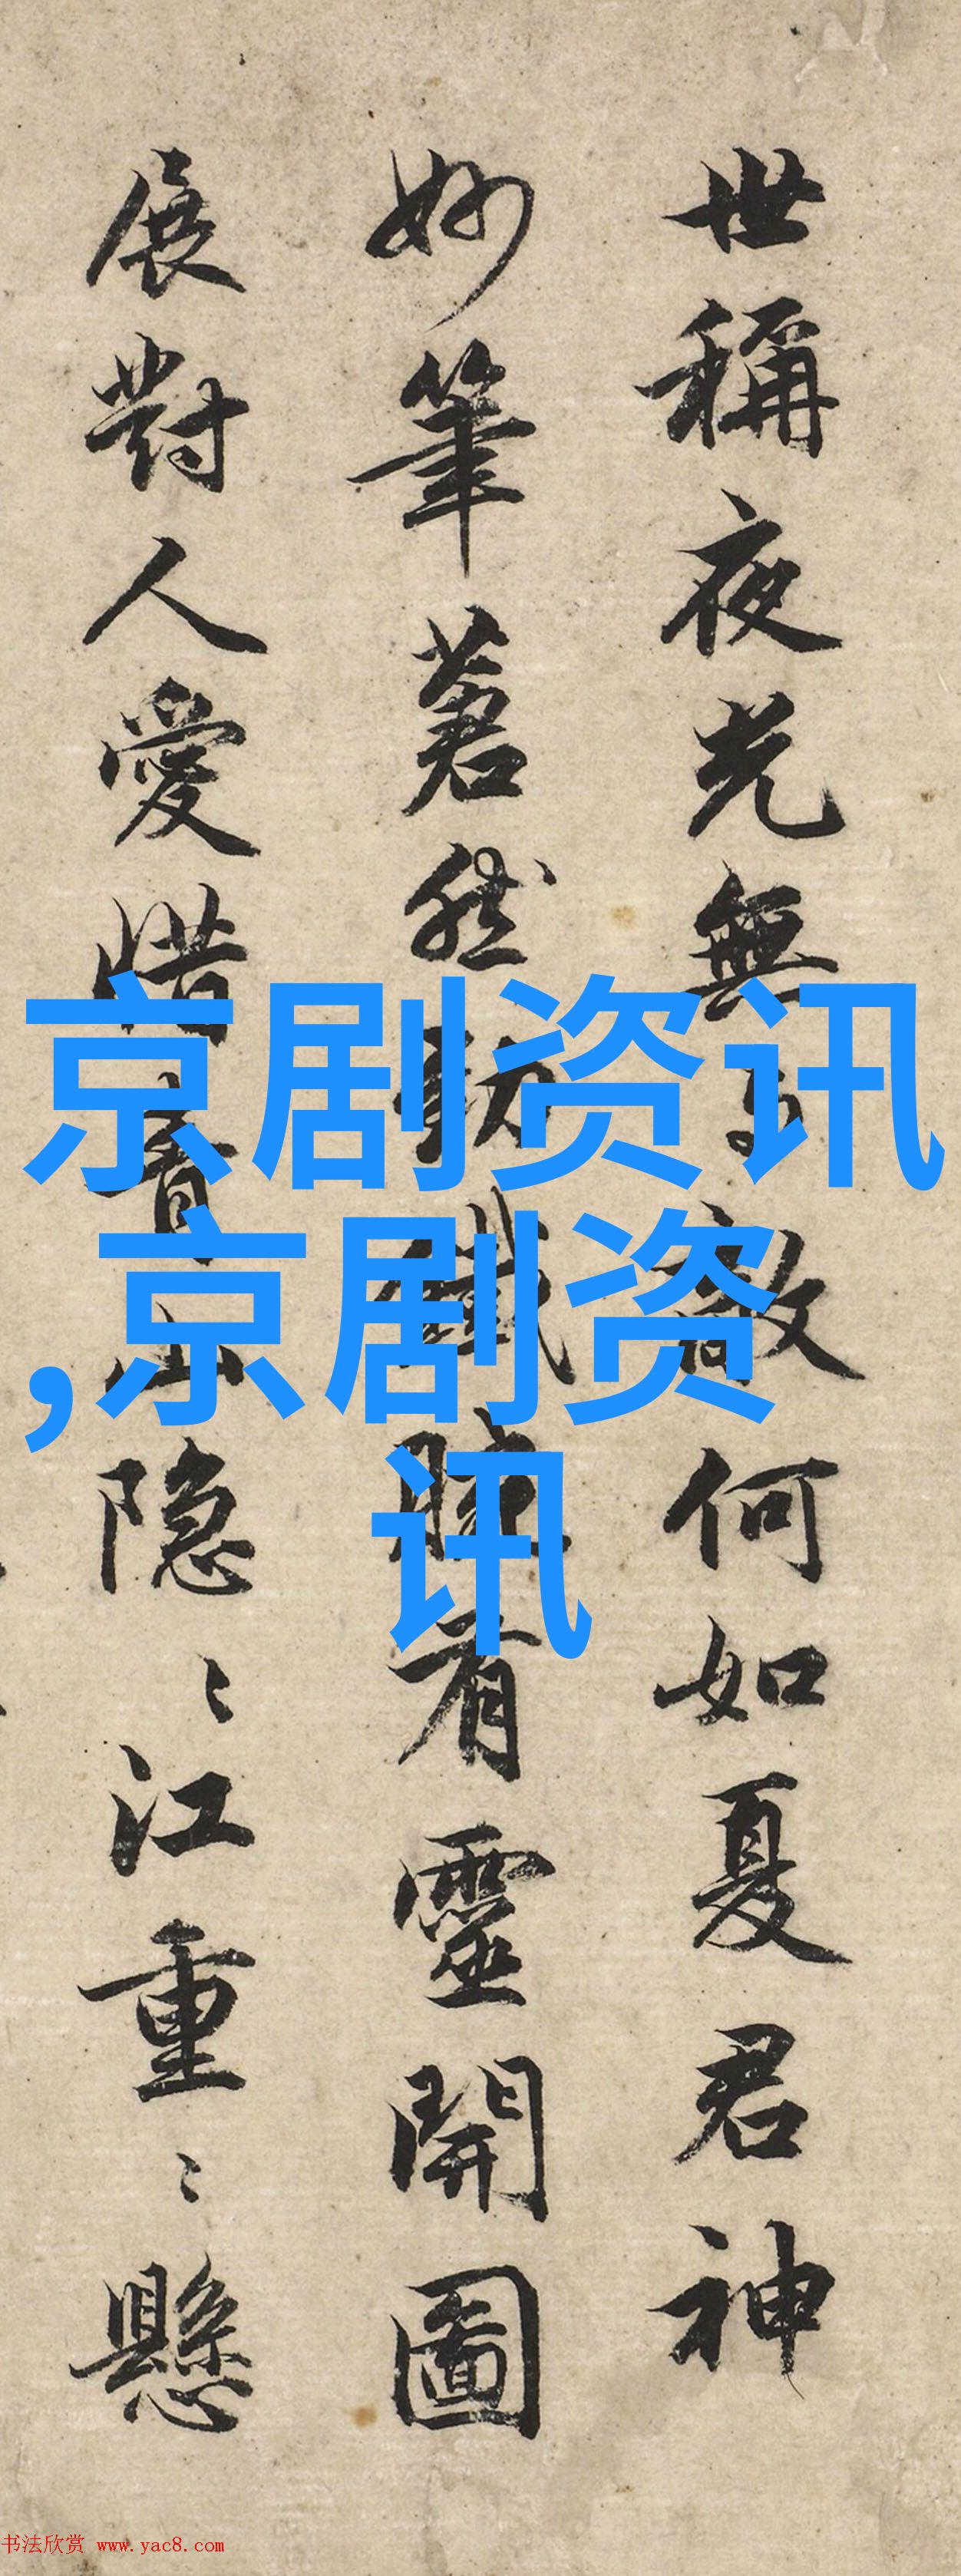 世稱夜光無敵何如夏君神
妙筆然纖看靈開圖
展對人愛惜青山隐〻江重〻懸
京剧资讯
,京剧资
讯
书法欣赏 www.yac8.com